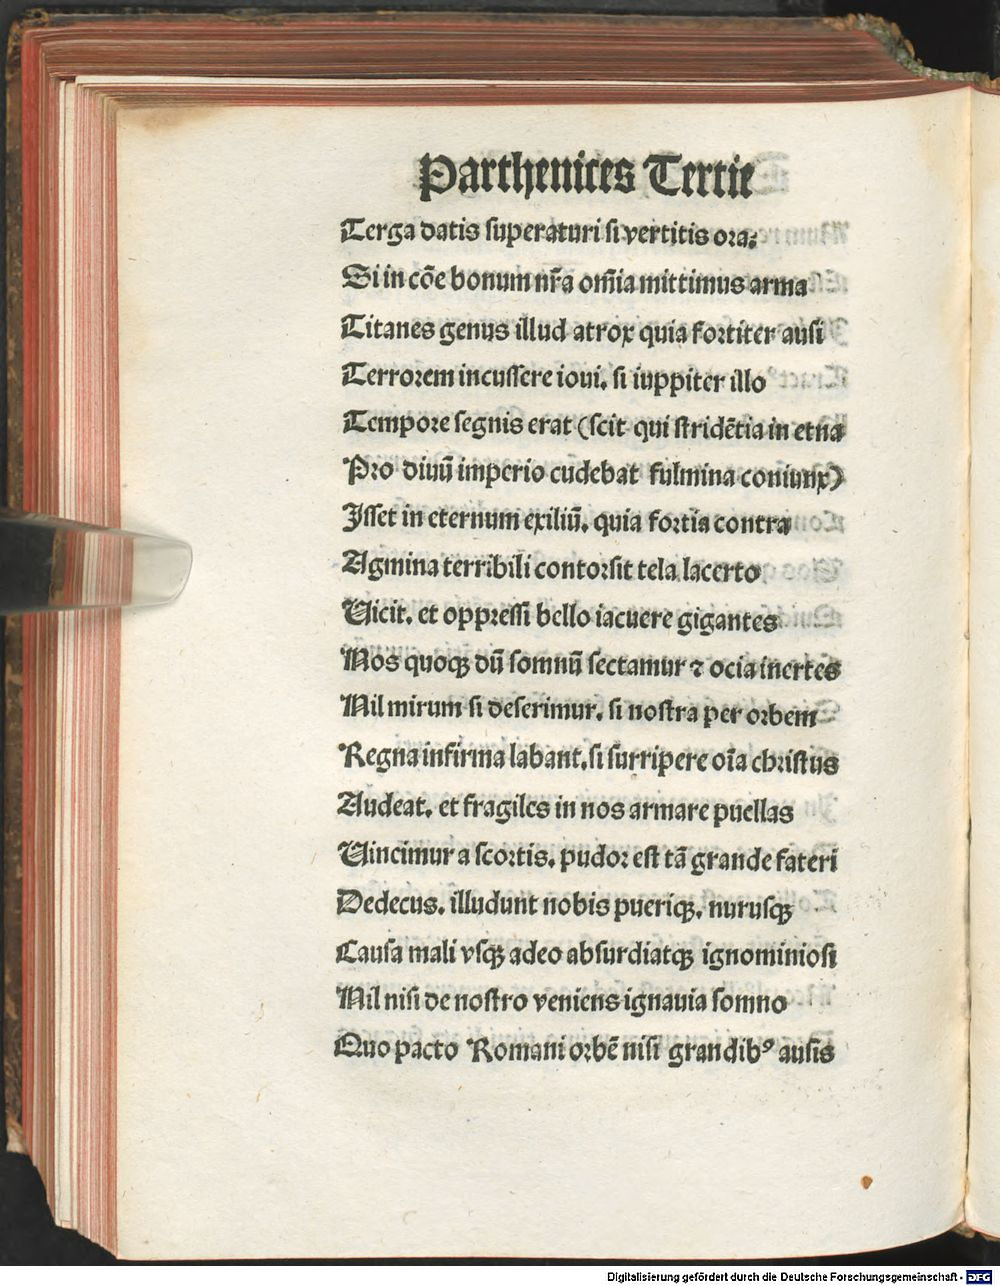 Parthenices Tertie
Terga datis superaturi si vertitis ora;
Si in cõe bonum nr̃a om̃ia mittimus arma
Titanes genus illud atrox quia fortiter ausi
Terrorem incussere ioui. si iuppiter illo
Tempore segnis erat (scit qui stridẽtia in etna
Pro diuũ imperio cudebat fulmina coniunx)
Isset in eternum exiliũ. quia fortia contra
Agmina terribili contorsit tela lacerto
Uicit. et oppressi bello iacuere gigantes
Nos quoqꝫ dũ somnũ sectamur ⁊ ocia inertes
Nil mirum si deserimur. si nostra per orbem
Regna infirma labant. si surripere oĩa christus
Audeat. et fragiles in nos armare puellas
Uincimur a scortis. pudor est tã grande fateri
Dedecus. illudunt nobis pueriqꝫ. nurusqꝫ
Causa mali vsqꝫ adeo absurdiatqꝫ ignominiosi
Nil nisi de nostro veniens ignauia somno
Quo pacto Romani orbẽ nisi grandibꝰ ausis
Digitalisierung gefördert durch die Deutsche Forschungsgemeinschaft - DFG